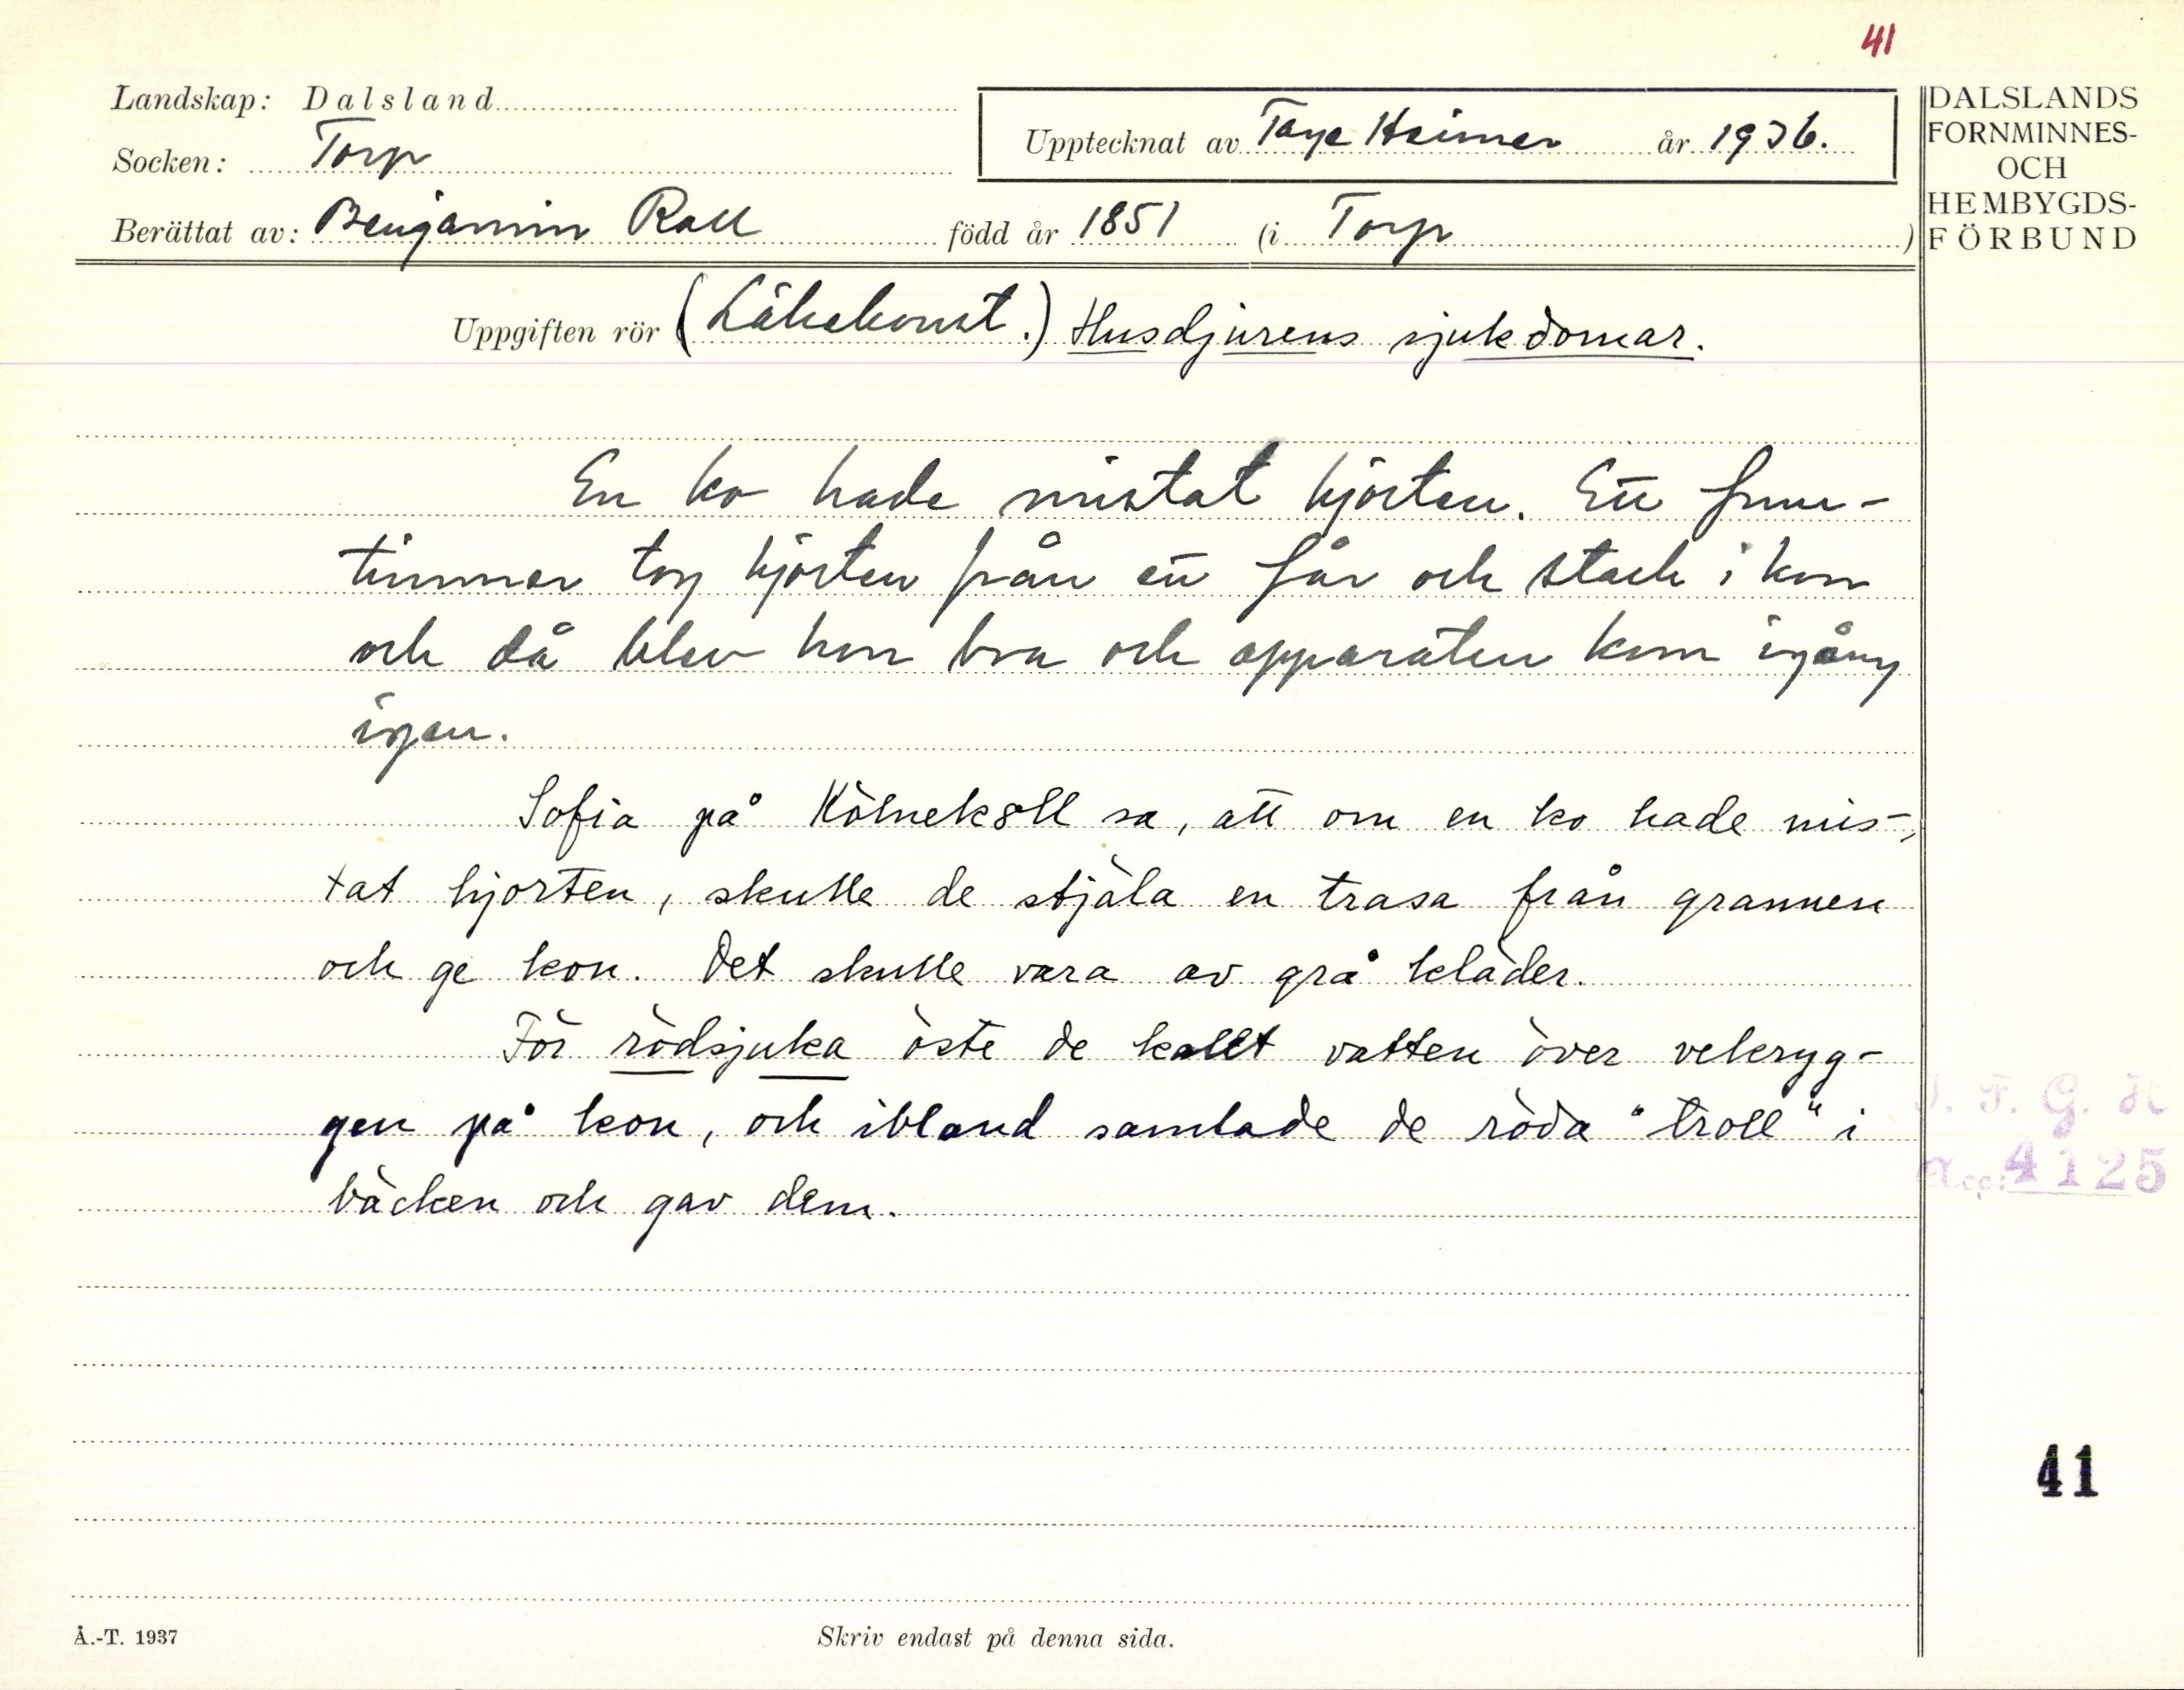 41
Landskap: Dalsland
Socken: Torp
Upptecknat av Tage Heimer år 1936.
Berättat av: Benjamin Roll född år 1851 (i Torp)
DALSLANDS
FORNMINNES-
OCH
HEMBYGDS-
FÖRBUND
Uppgiften rör (Läkekonst.) Husdjurens sjukdomar.
En ko hade mistat hjorten. Ett frun-
timmer tog hjorten från ett får och stack i kon
och då blev hon bra och apparaten kom igång
igen.
Sofia på sa, att om en ko hade mis-
tat hjorten, skulle de stjäla en trasa från grannen
och ge kon. Det skulle vara av grå kläder.
För rödsjuka öste de kallt vatten över vekryg-
gen på kon, och ibland samlade de röda "troll" i
bäcken och gav dem.
I. F. G. H
Acc: 4125
41
Å.-T. 1937
Skriv endast på denna sida.